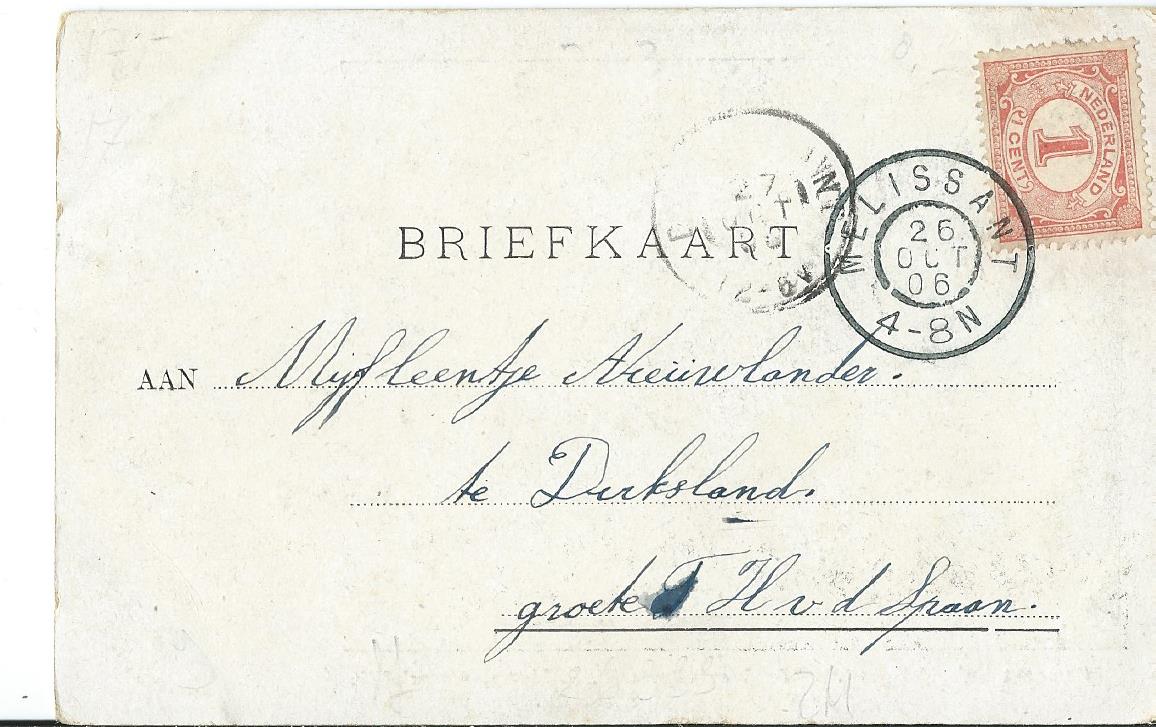 NEDERLAND
1
(1 CENT)
MELISSANT
26
OCT
06
4-8N
27
BRIEFKAART
AAN Mejf leentje Nieuwlander.
te Dirksland.
groete T H v d Spaan.